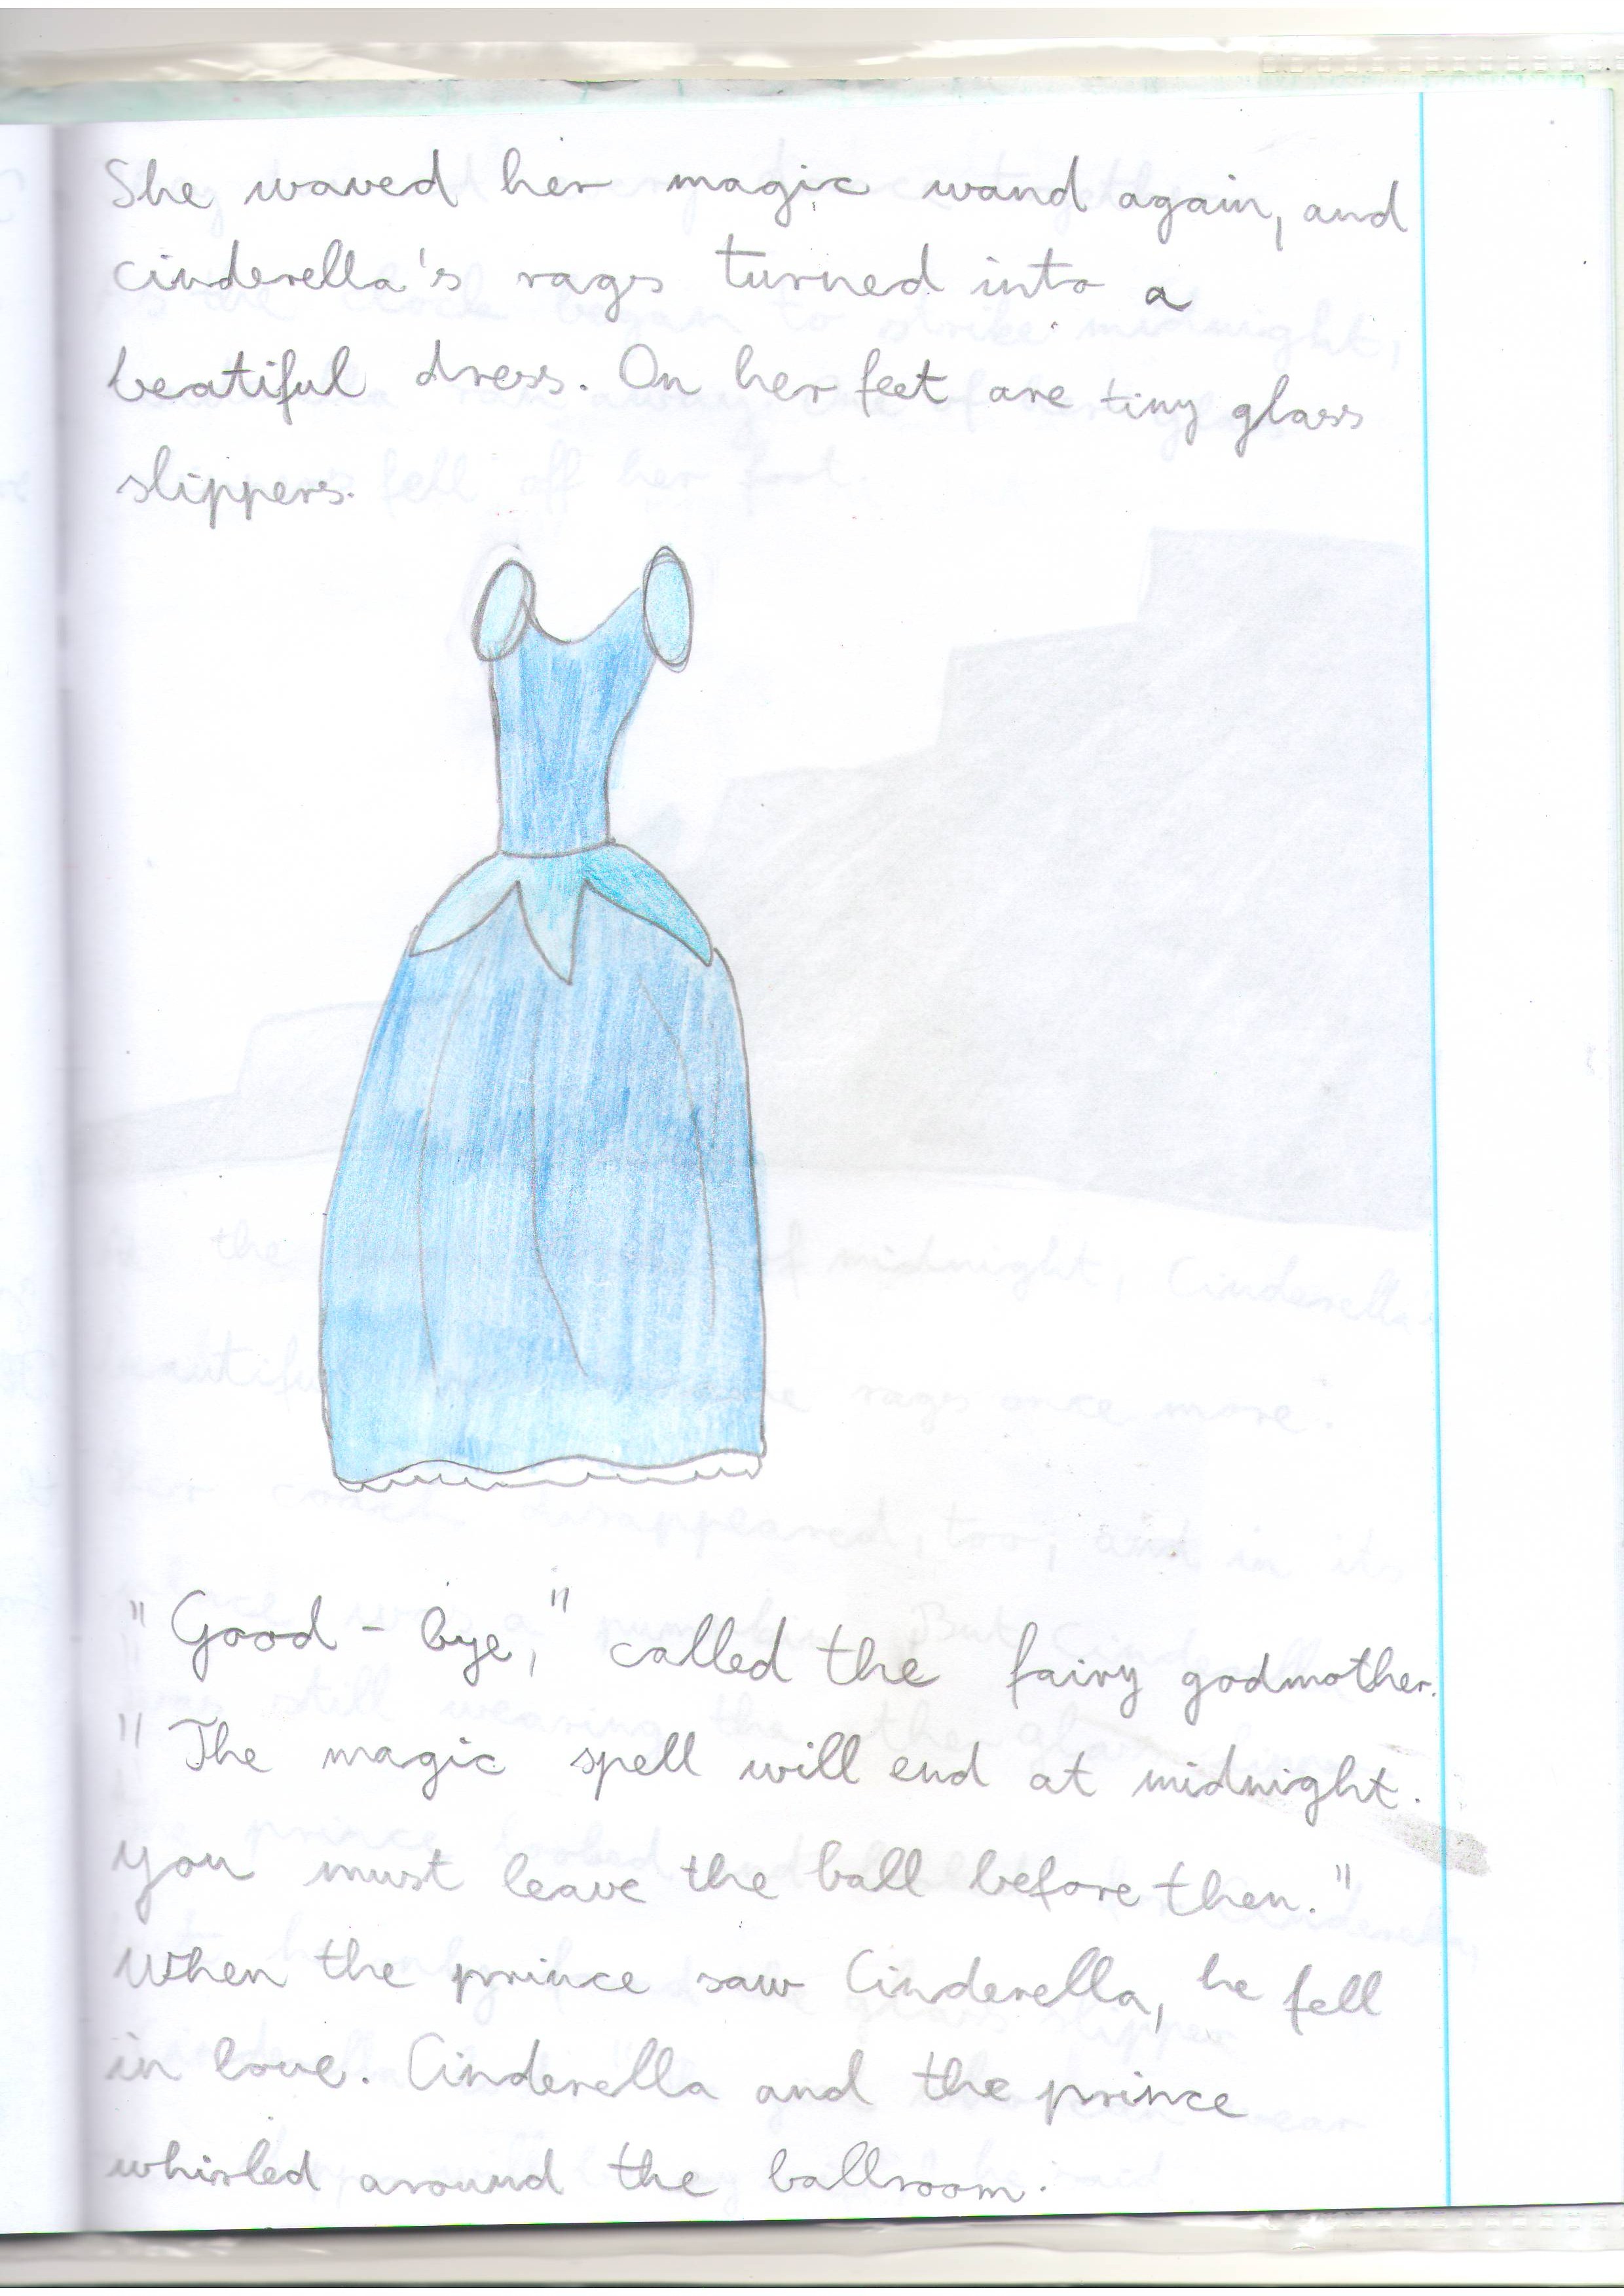 She waved her magic wand again, and
cinderella's rags turned into a
beatiful dress. On her feet are tiny glass
slippers.
"Good-bye," called the fairy godmother.
"The magic spell will end at midnight.
you must leave the ball before then."
When the prince saw Cinderella, he fell
in love. Cinderella and the prince
whirled around the ballroom.